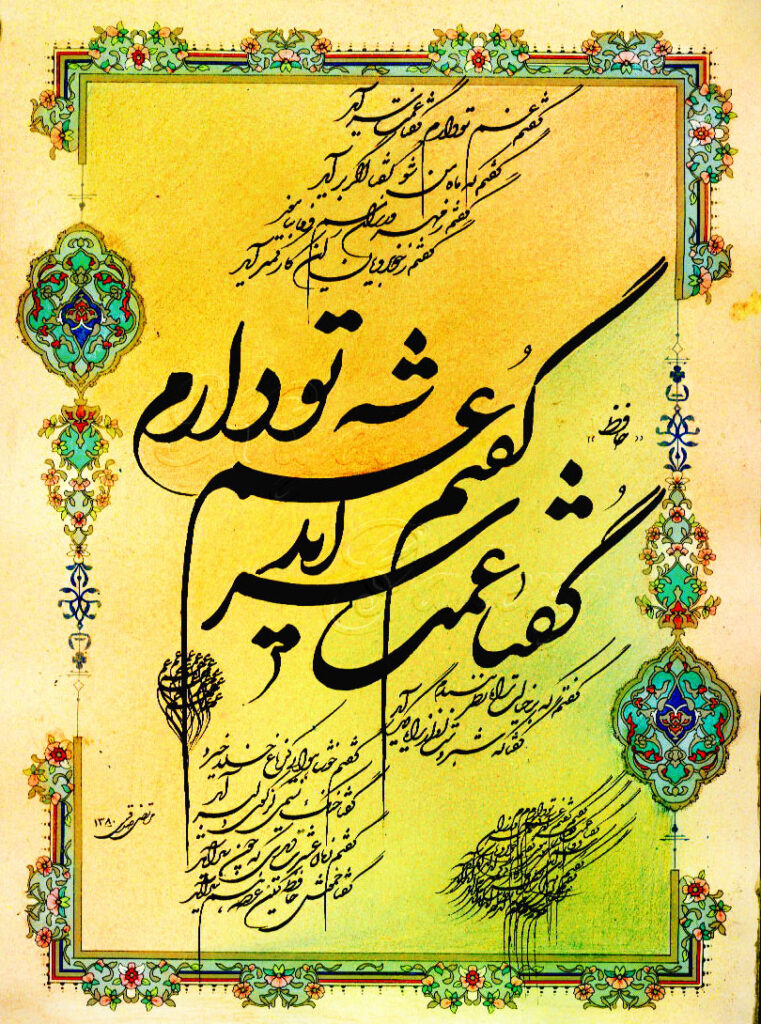 گفتم غم تو دارم گفتا غمت سر آید
گفتم که ماه من شو گفتا اگر برآید
گفتم ز مهرورزان رسم وفا بیاموز
گفتا ز خوبرویان این کار کمتر آید
گفتم غم تو دارم
گفتا غمت سر آید
«حافظ»
گفتم که بر خیالت راه نظر ببندم
گفتا که شبرو است او از راه دیگر آید
گفتم خوشا هوایی کز باغ خلد خیزد
گفتا خنک نسیمی کز کوی دلبر آید
گفتم زمان عشرت دیدی که چون سر آمد
گفتا خموش حافظ کاین غصه هم سر آید
مرتضی ۱۳۸۰